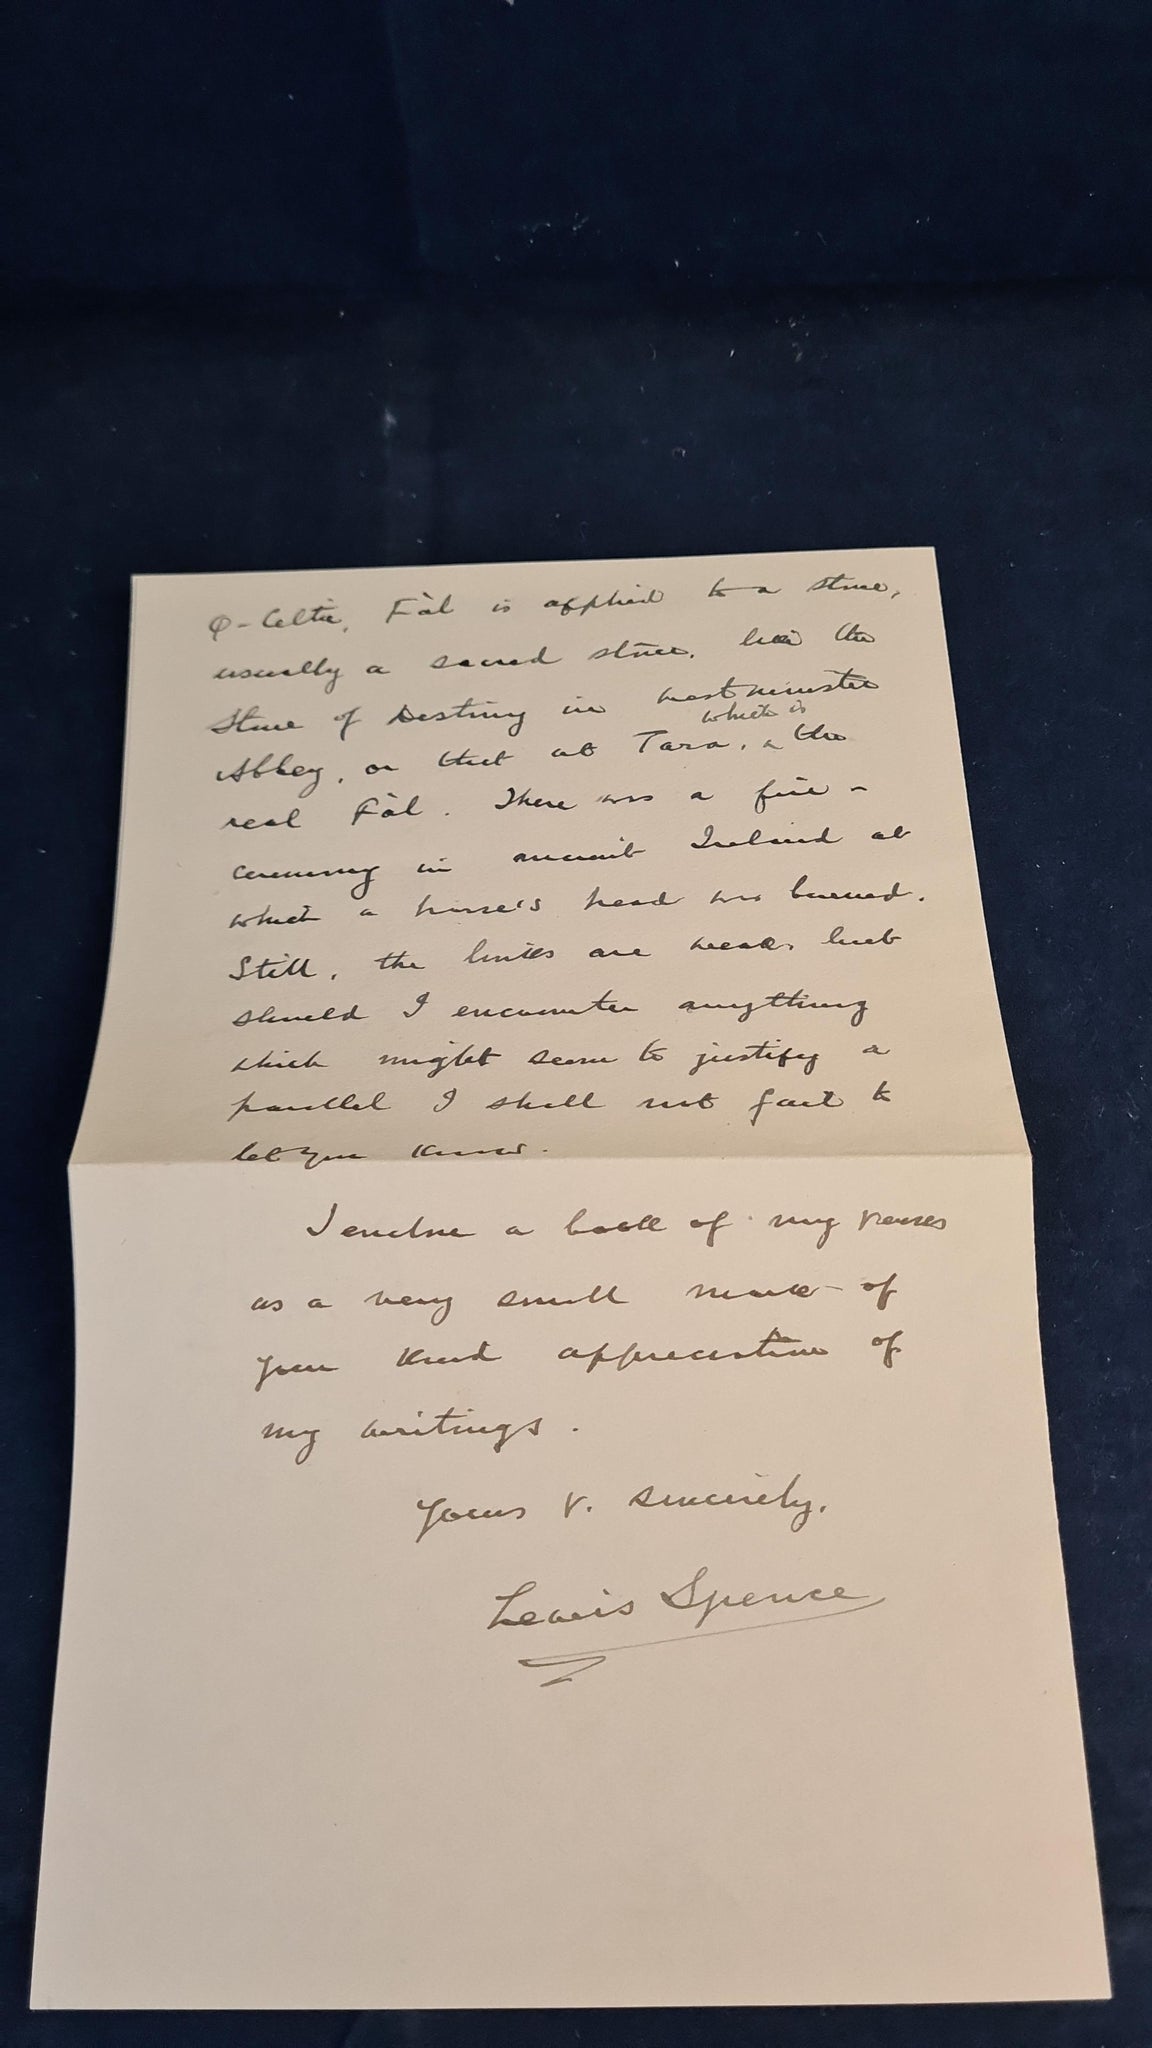 Q-Celtic, Fàl is applied to a stone,
usually a sacred stone, like the
Stone of Destiny in Westminster
Abbey, or that at Tara, which is the
real Fàl. There was a fire-
ceremony in ancient Ireland at
which a horse's head was burned.
Still, the links are weak, but
should I encounter anything
which might seem to justify a
parallel I shall not fail to
let you know.
I enclose a book of my verses
as a very small mark of
your kind appreciation of
my writings.
Yours v. sincerely,
Lewis Spence